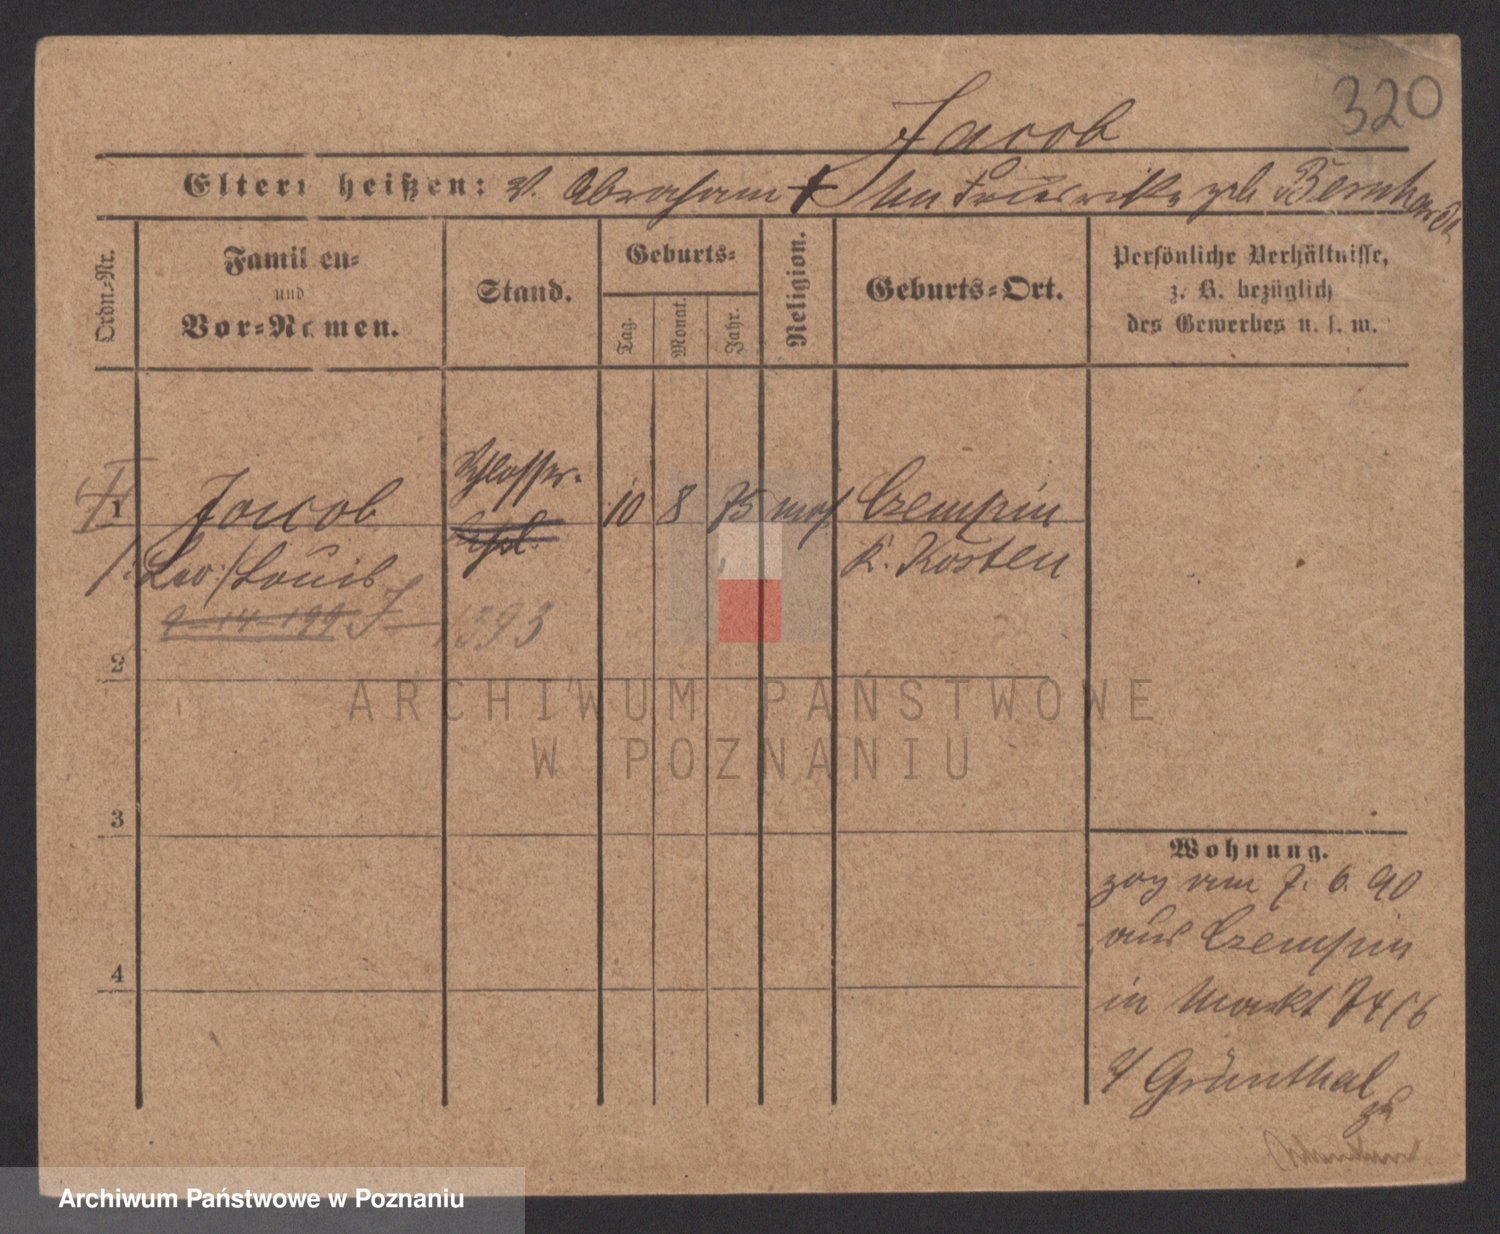 320
Jacob
Eltern heißen: V. Abraham † Mu Friederike geb Bernhardt
Ordn.-Nr.
Familien-
und
Vor-Namen.
Stand.
Geburts-
Tag.
Monat.
Jahr.
Religion.
Geburts-Ort.
Persönliche Verhältnisse,
z. B. bezüglich
des Gewerbes u. s. w.
1
Jacob
Leo / Louis
9 14 199 J 1393
Schlosser.
10 8 75 mos
Czempin
K. Kosten
2
3
4
Wohnung.
zog am 7. 6. 90
aus Czempin
in Markt 74/6
b/ Grünthal
zu
ARCHIWUM PAŃSTWOWE
W POZNANIU
Archiwum Państwowe w Poznaniu